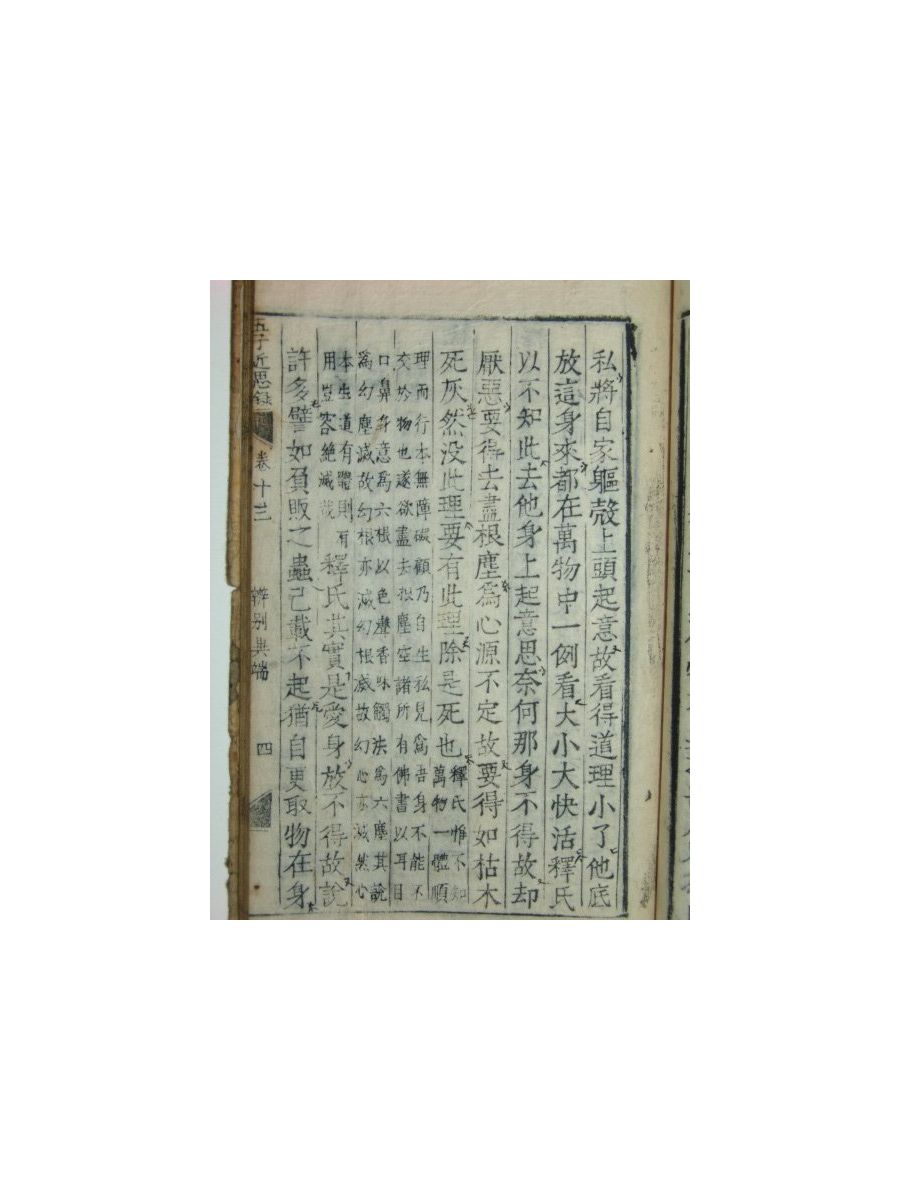 私將自家軀殼上頭起意故看得道理小了他底
放這身來都在萬物中一例看大小大快活釋氏
以不知此去他身上起意思奈何那身不得故却
厭惡要得去盡根塵爲心源不定故要得如枯木
死灰然没此理要有此理除是死也
釋氏惟不知
萬物一體順
理而行本無障礙顧乃自生私見爲吾身不能不
交於物也遂欲盡去根塵空諸所有佛書以耳目
口鼻身意爲六根以色聲香味觸法爲六塵其說
爲幻塵滅故幻根亦滅幻根滅故幻心亦滅然心
本生道有體則有
用豈容絶滅哉
釋氏其實是愛身放不得故說
許多譬如負販之蟲已載不起猶自更取物在身
五子近思錄 卷十三 辨别異端 四